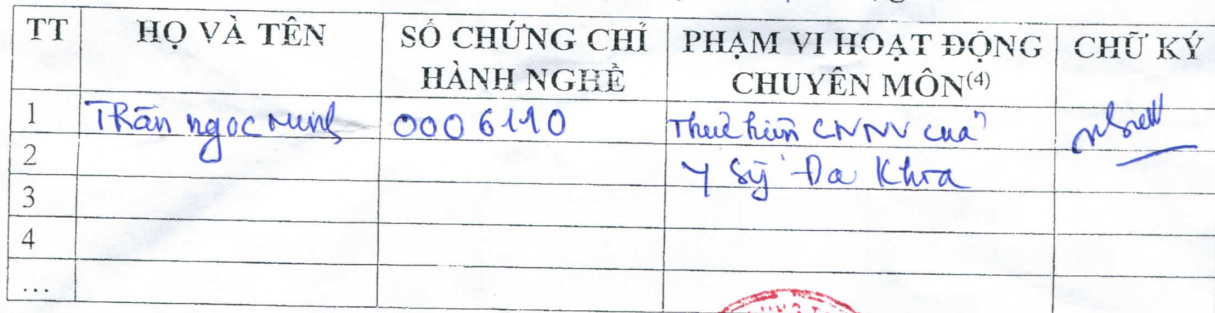 TT HỌ VÀ TÊN SỐ CHỨNG CHỈ HÀNH NGHỀ PHẠM VI HOẠT ĐỘNG CHUYÊN MÔN(4) CHỮ KÝ
1 Trần ngọc Minh 0006110 Thực hiện CNNV của
2 Y Sỹ Đa Khoa
3
4
...